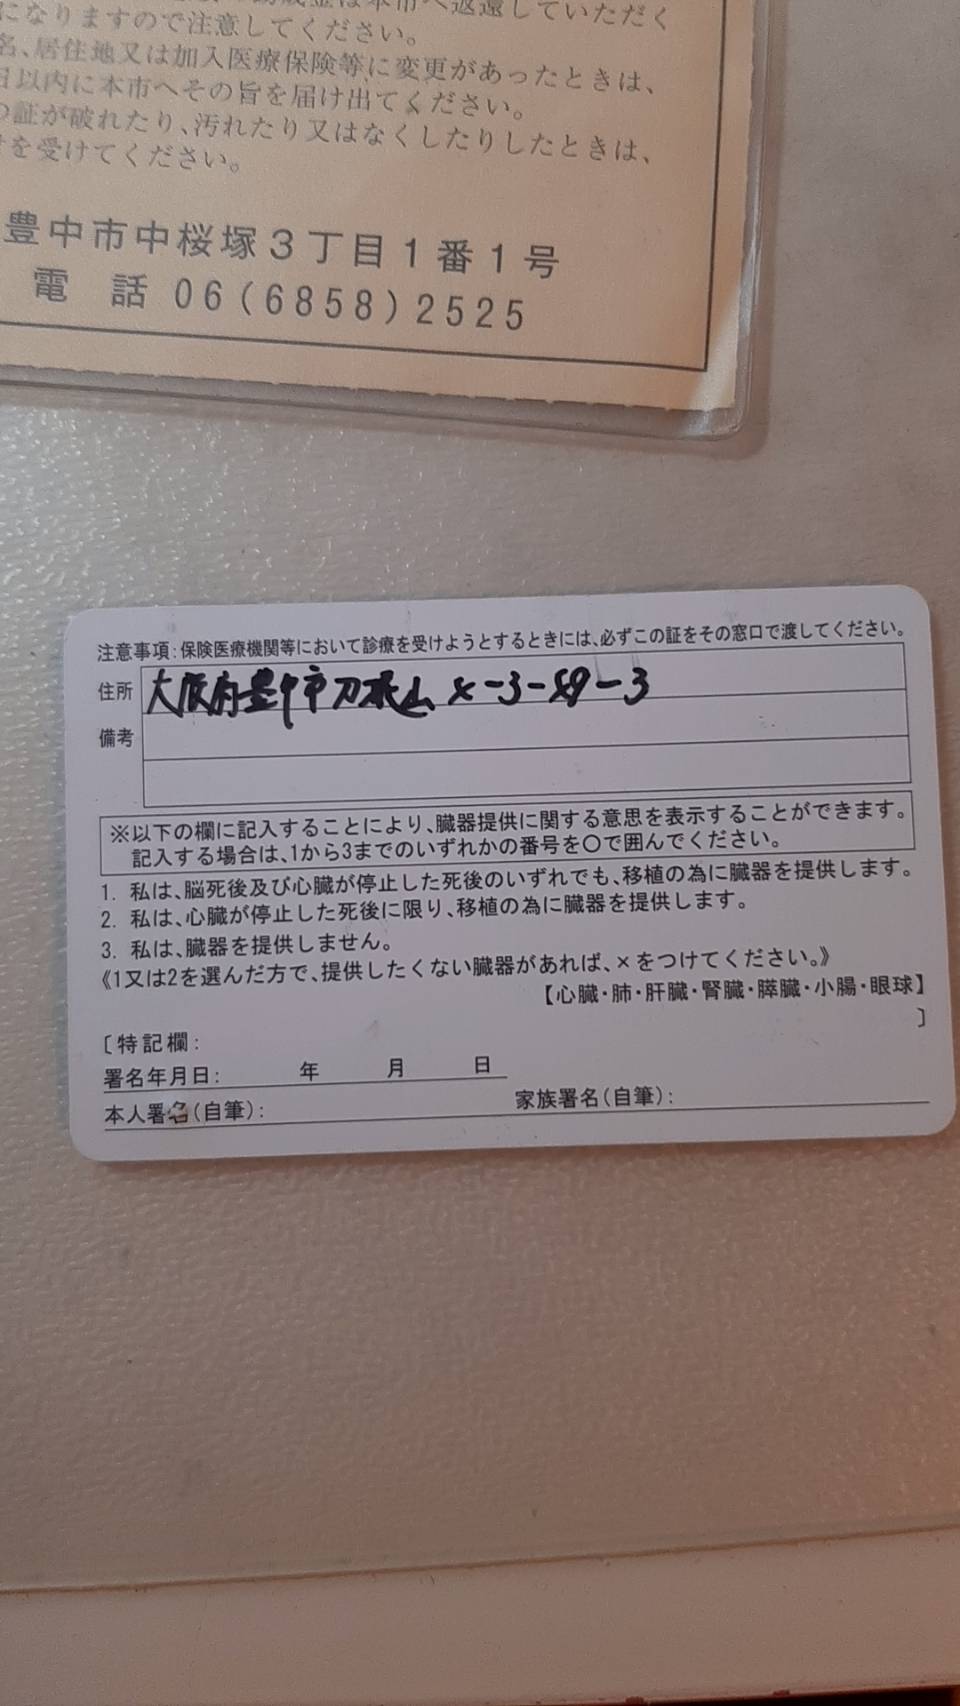 になりますので注意してください。
名、居住地又は加入医療保険等に変更があったときは、
日以内に本市へその旨を届け出てください。
の証が破れたり、汚れたり又はなくしたりしたときは、
を受けてください。
豊中市中桜塚3丁目1番1号
電 話 06(6858)2525
注意事項:保険医療機関等において診療を受けようとするときには、必ずこの証をその窓口で渡してください。
住所 大阪府豊中市刀根山
備考
※以下の欄に記入することにより、臓器提供に関する意思を表示することができます。
記入する場合は、1から3までのいずれかの番号を〇で囲んでください。
1. 私は、脳死後及び心臓が停止した死後のいずれでも、移植の為に臓器を提供します。
2. 私は、心臓が停止した死後に限り、移植の為に臓器を提供します。
3. 私は、臓器を提供しません。
《1又は2を選んだ方で、提供したくない臓器があれば、×をつけてください。》
【心臓・肺・肝臓・腎臓・膵臓・小腸・眼球】
〔特記欄: 〕
署名年月日: 年 月 日
本人署名(自筆): 家族署名(自筆):